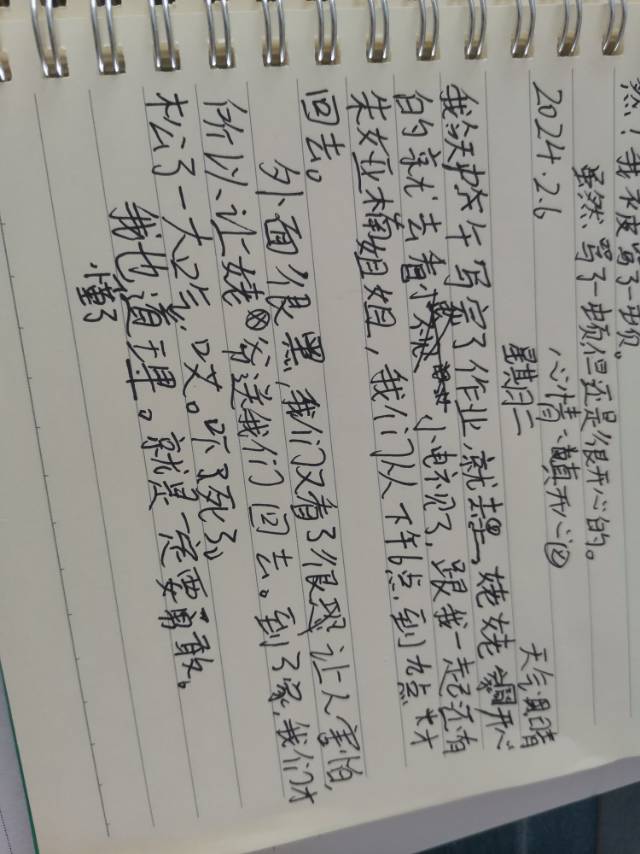 然！我才皮写了一顿。
虽然写了一顿但还是很开心的。
2024.2.6 星期二 心情:真开心 天气:晴
我今天中午写完了作业,就去姥姥家开心
的就去看小电视了,跟我一起还有
朱亚楠姐姐,我们从下午6点到九点才
回去。
外面很黑,我们又看了很恐让人害怕,
所以让姥爷送我们回去。到了家,我们才
松了一大口气。哎。吓死了
我也懂了道理。就是一定要勇敢。